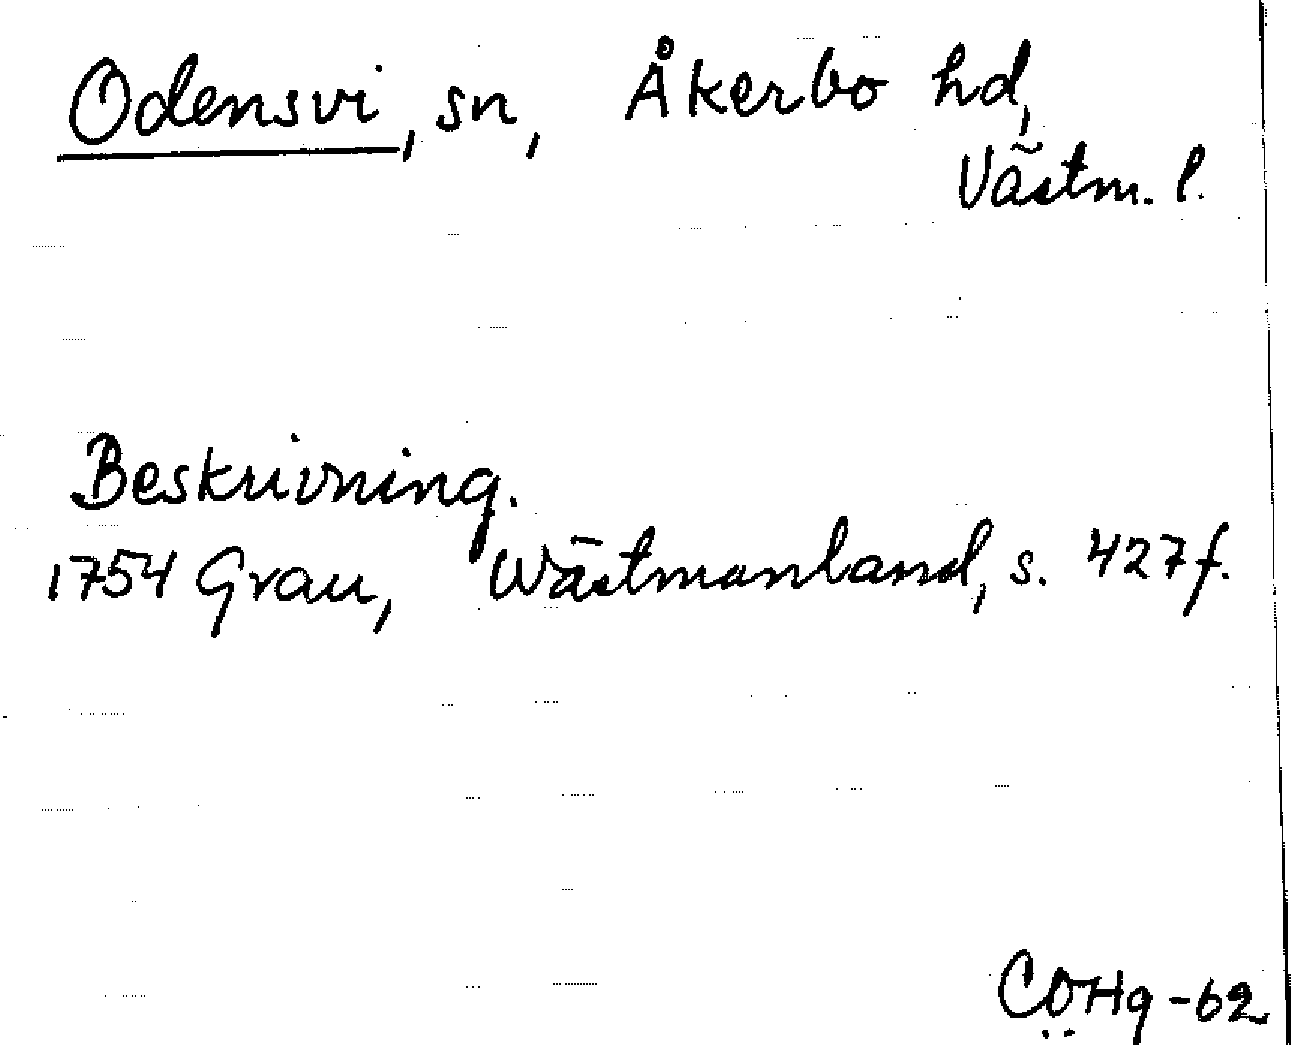 Odensvi, sn, Åkerbo hd,
Västm. l.
Beskrivning.
1754 Grau, Wästmanland, s. 427f.
CÖHg -62